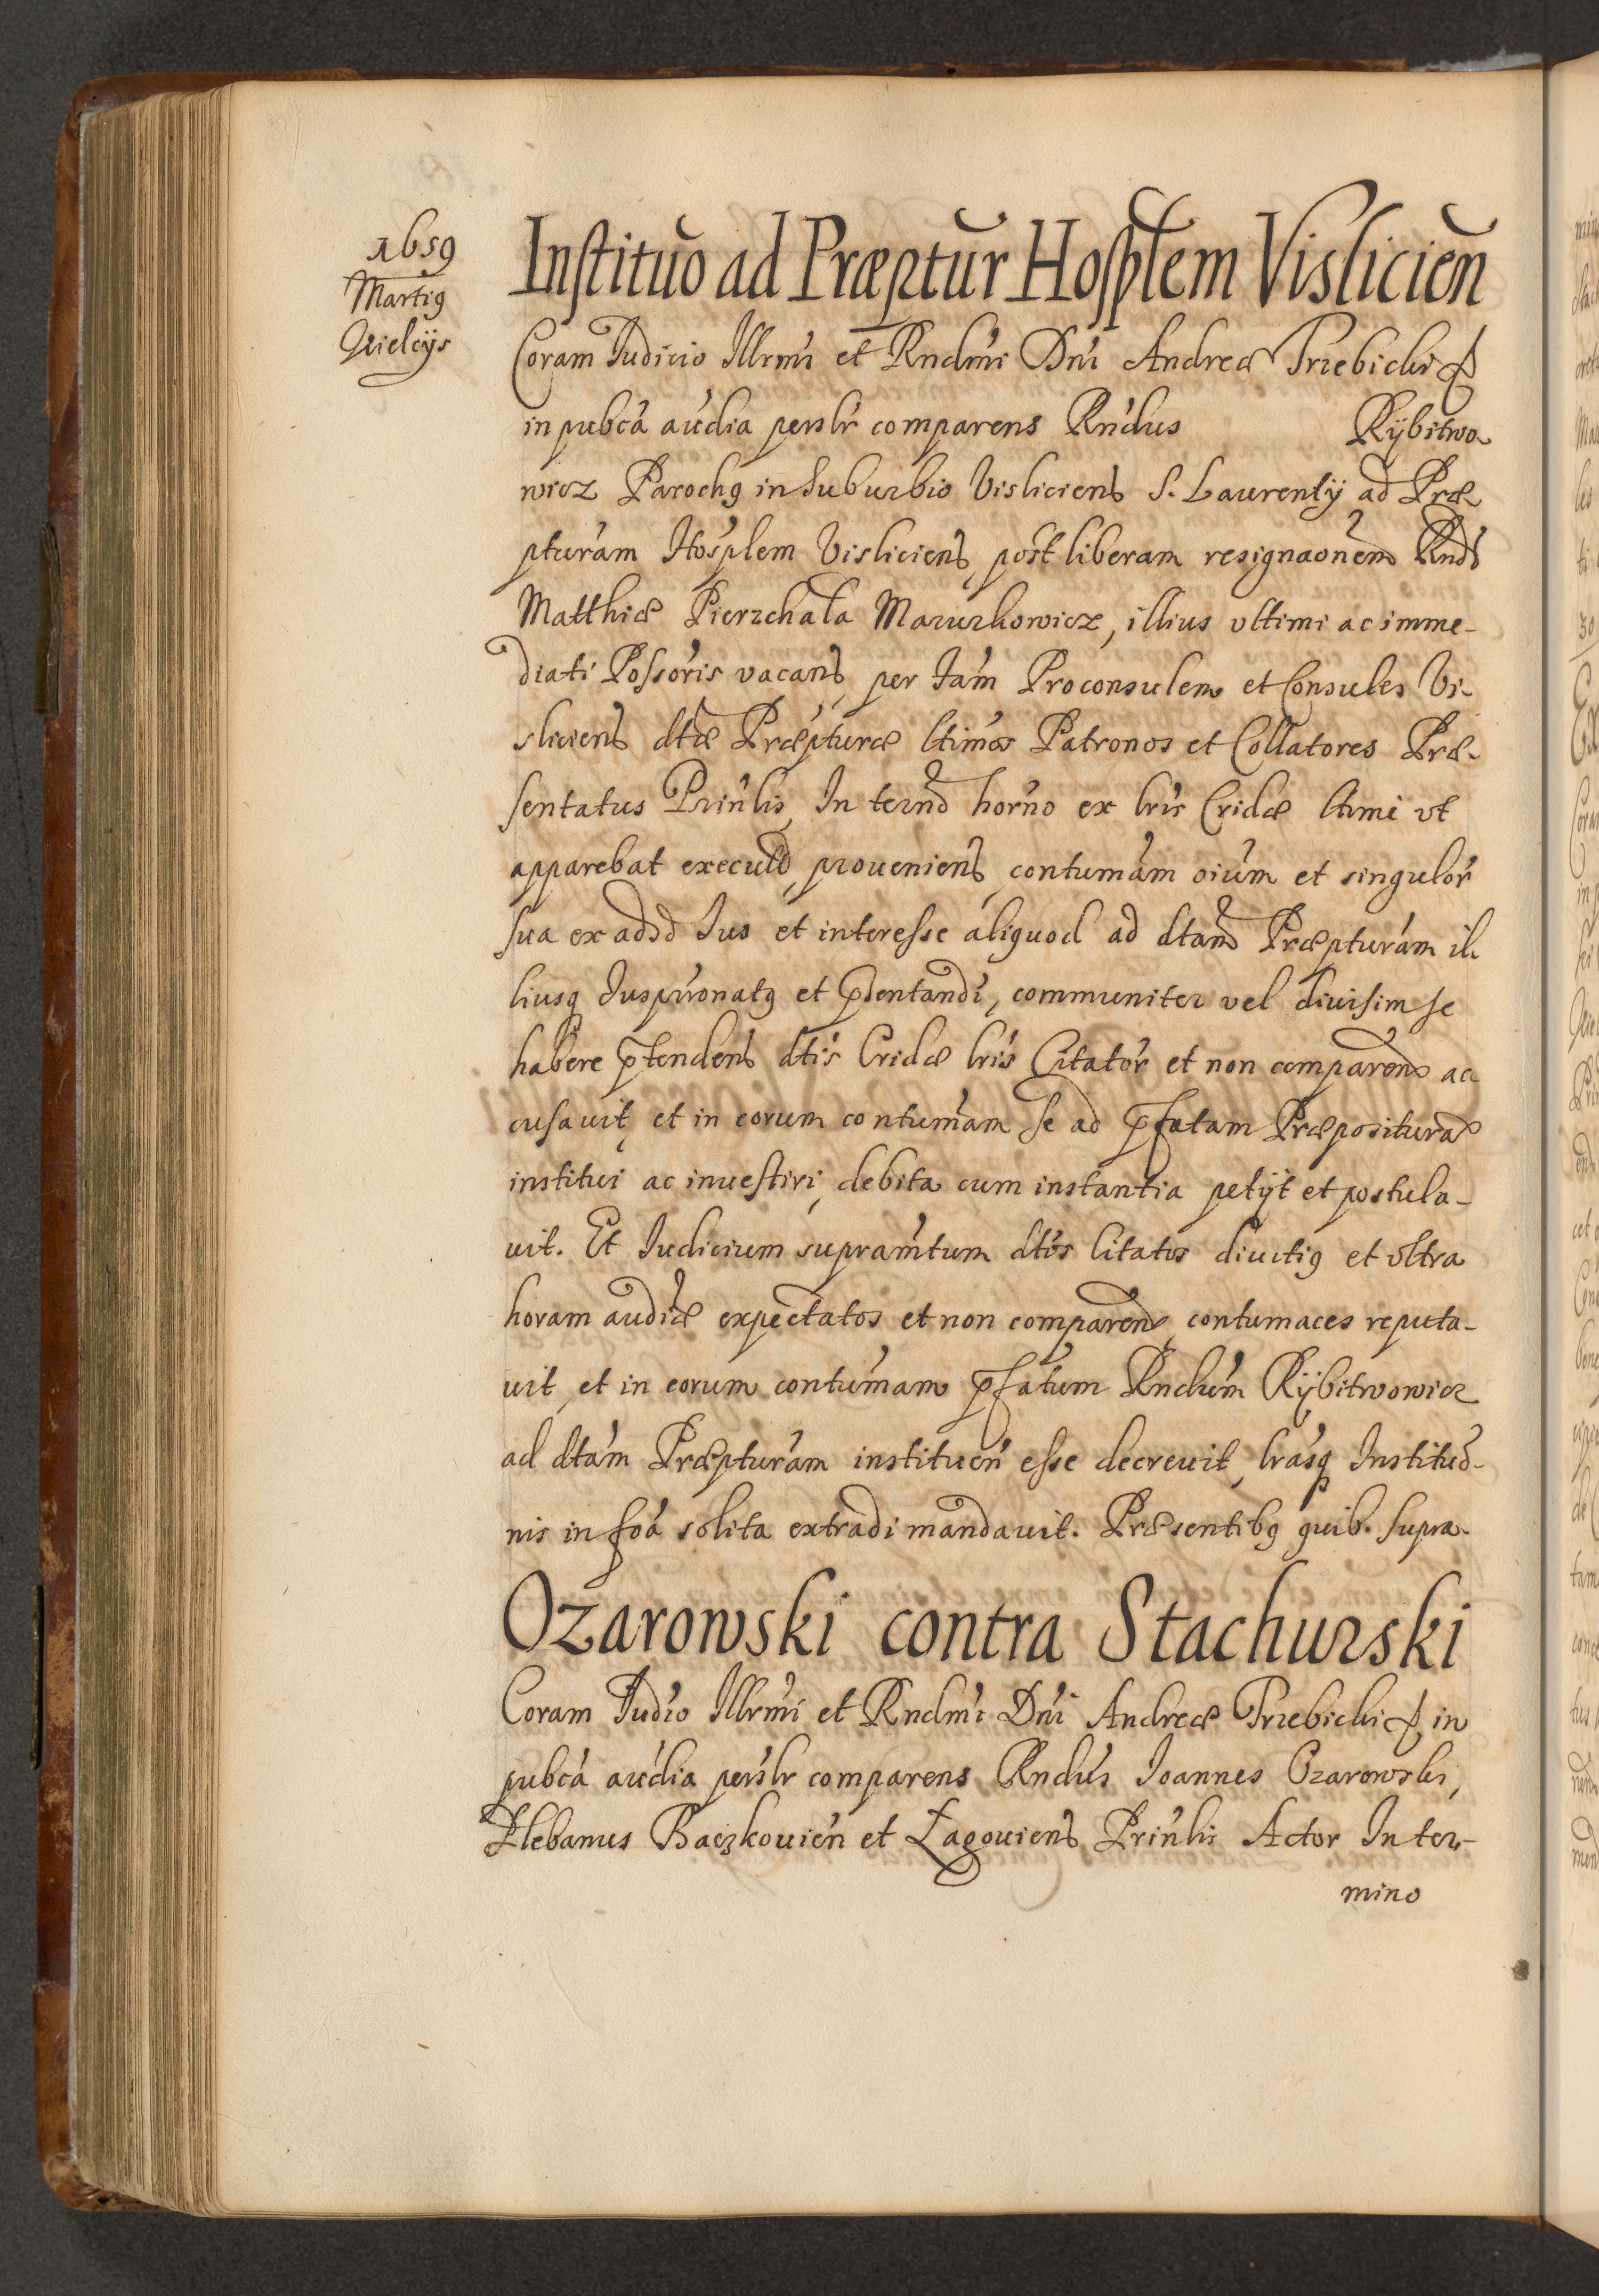 1659
Martiꝯ
Kielcÿs
Institũo ad Præptũr Hosplem Vislicień
Coram Iudicio Illrmi et Rndmi Dni Andreæ Trzebicki &
in pubca audia perslr comparens Rndus Rÿbitwo
wicz Parochꝯ in Suburbio Visliciens S. Laurentÿ ad Præ
pturam Hosplem Visliciens, post liberam resignaonem Rndi
Matthiæ Pierzchała Mazurkowicz, illius ultimi ac imme-
diati Possoris vacans, per Fam Proconsulem et Consules Vi-
sliciens dtæ Præpturæ ltimos Patronos et Collatores Præ-
sentatus Prinlis, In termo horno ex lris Cridæ ltimè vt
apparebat execut, proueniens, contumam oium et singulor
sua ex ad Ius et interesse aliquod ad dtam Præpturam il-
liusq Iuspronatꝯ et pñtentandi, communiter vel diuisim se
habere ptendens dtis Cridæ lris Citator et non comparen ac
cusauit, et in eorum contumam se ad pfatam Præpositura
institui ac inuestiri, debita cum instantia petÿt et postula-
uit. Et Iudicium supramtum dtos Citatos diutiꝯ et vltra
horam audiæ expectatos et non comparen, contumaces reputa-
uit, et in eorum contumam pfatum Rndum Rÿbitwowicz
ad dtam Præpturam instituen esse decreuit, lrasq Institu-
nis in foa solita extradi mandauit. Præsentibꝯ quib. supra.
Ozarowski contra Stachurski
Coram Iudio Illrmi et Rndmi Dni Andreæ Trzebicki & in
pubca audia perslr comparens Rndus Ioannes Ozarowski,
Plebanus Baczkouien et Łagouiens Prinlis Actor In ter-
mino